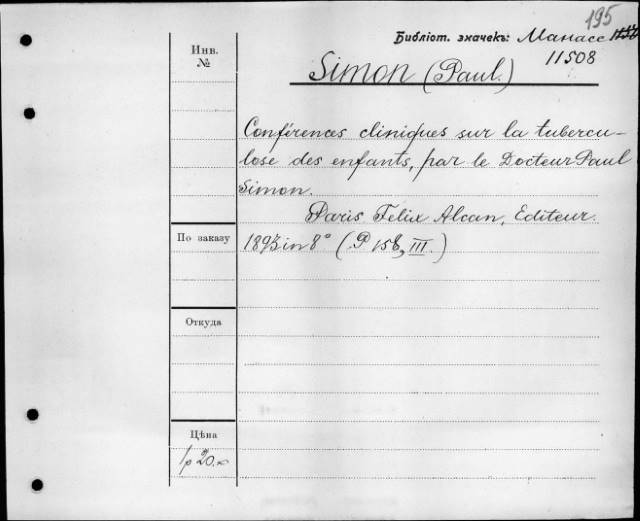 195
Библіот. значекъ: Манасс
11508
Инв.
№
Simon (Paul.)
Conférences cliniques sur la tubercu-
lose des enfants, par le Docteur Paul
Simon.
Paris Felix Alcan, Editeur.
По заказу
1893 in 8° (P 158, III.)
Откуда
Цѣна
1р 20.к